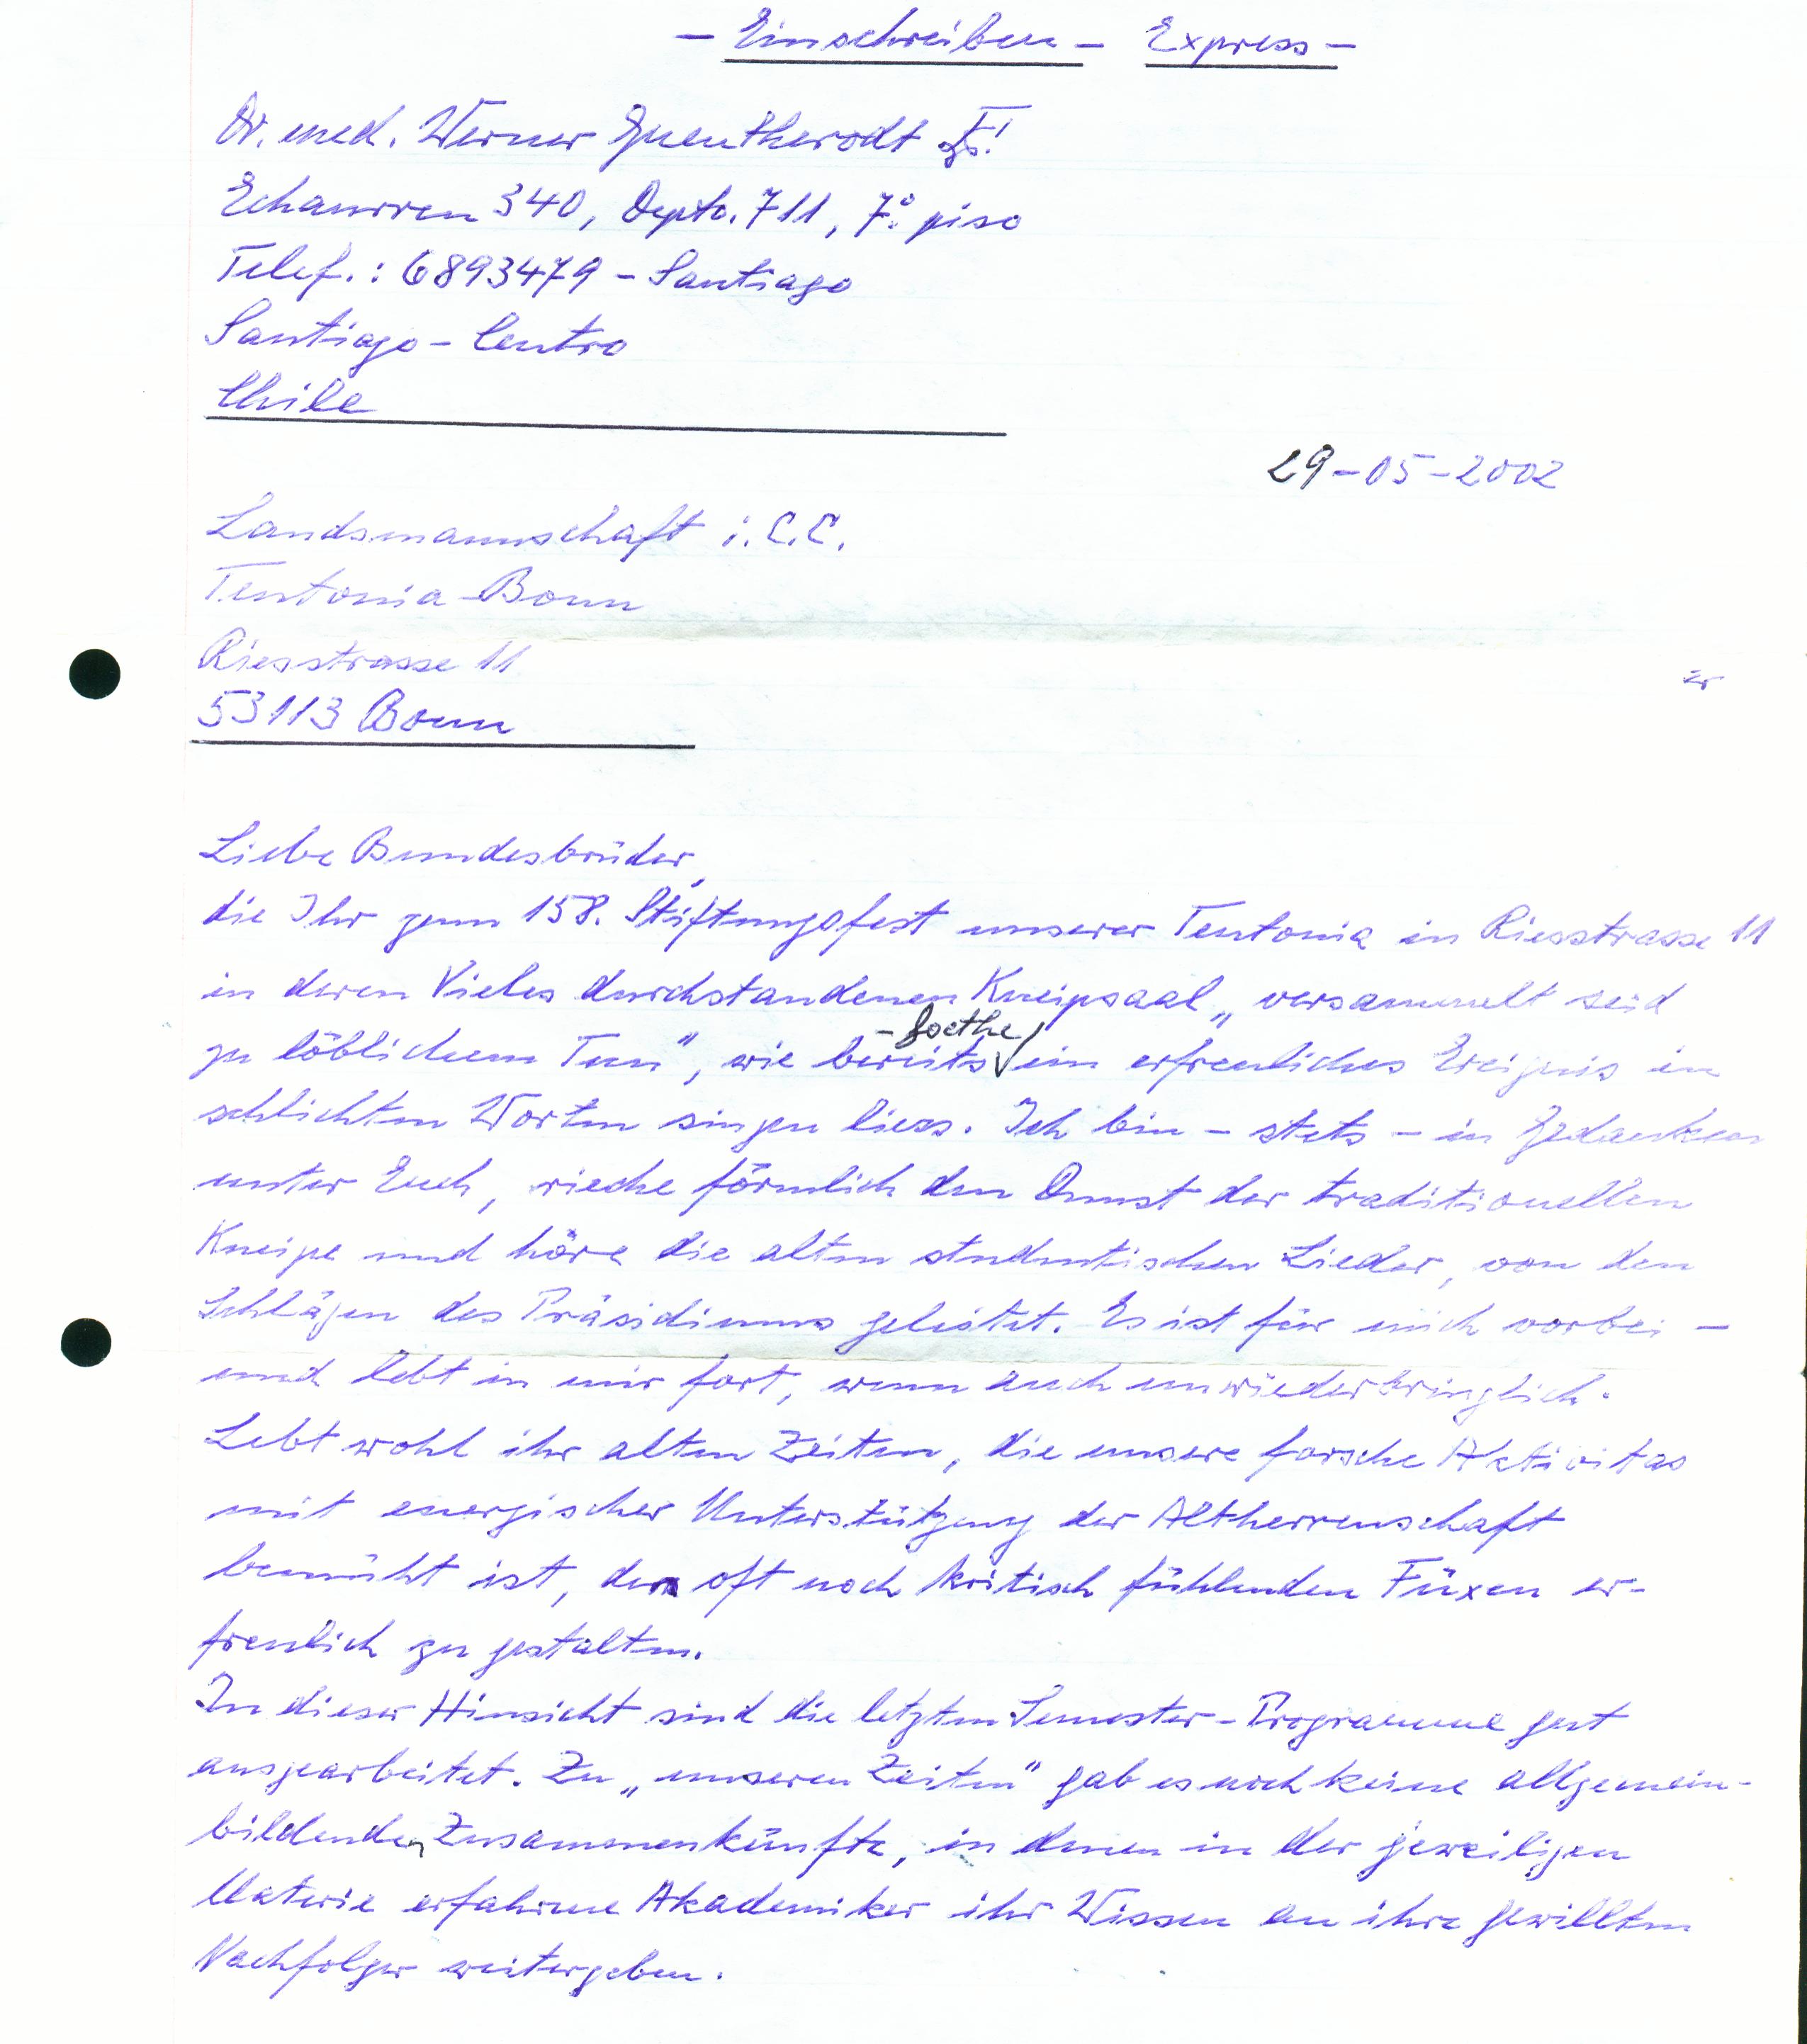 - Einschreiben - Express -
Dr. med. Werner Guentherodt
Echaurren 340, Depto. 711, 7º piso
Telef.: 6893479 - Santiago
Santiago - Centro
Chile
29-05-2002
Landsmannschaft i. C.C.
Teutonia-Bonn
Riesstrasse 11
53113 Bonn
Liebe Bundesbrüder,
die Ihr zum 158. Stiftungsfest unserer Teutonia in Riesstrasse 11
in deren Vieles durchstandenen Kneipsaal „versammelt seid
- Goethe
zu löblichem Tun", wie bereits ein erfreuliches Ereignis in
schlichten Worten singen liess. Ich bin - stets - in Gedanken
unter Euch, rieche förmlich den Dunst der traditionellen
Kneipe und höre die alten studentischen Lieder, von den
Schlägen des Präsidiums geleitet. Es ist für mich vorbei -
und lebt in mir fort, wenn auch unwiederbringlich.
Lebt wohl ihr alten Zeiten, die unsere forsche Aktivitas
mit energischer Unterstützung der Altherrenschaft
bemüht ist, den oft noch kritisch fühlenden Füxen er-
freulich zu gestalten.
In dieser Hinsicht sind die letzten Semester-Programme gut
ausgearbeitet. Zu „unseren Zeiten" gab es noch keine allgemein-
bildenden Zusammenkünfte, in denen in der jeweiligen
Materie erfahrene Akademiker ihr Wissen an ihre gewillten
Nachfolger weitergeben.